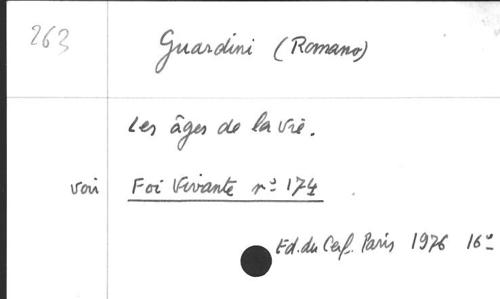 263 Guardini (Romano)
Les âges de la vie.
voir Foi Vivante nº 174
Ed. du Cerf. Paris 1976 16º